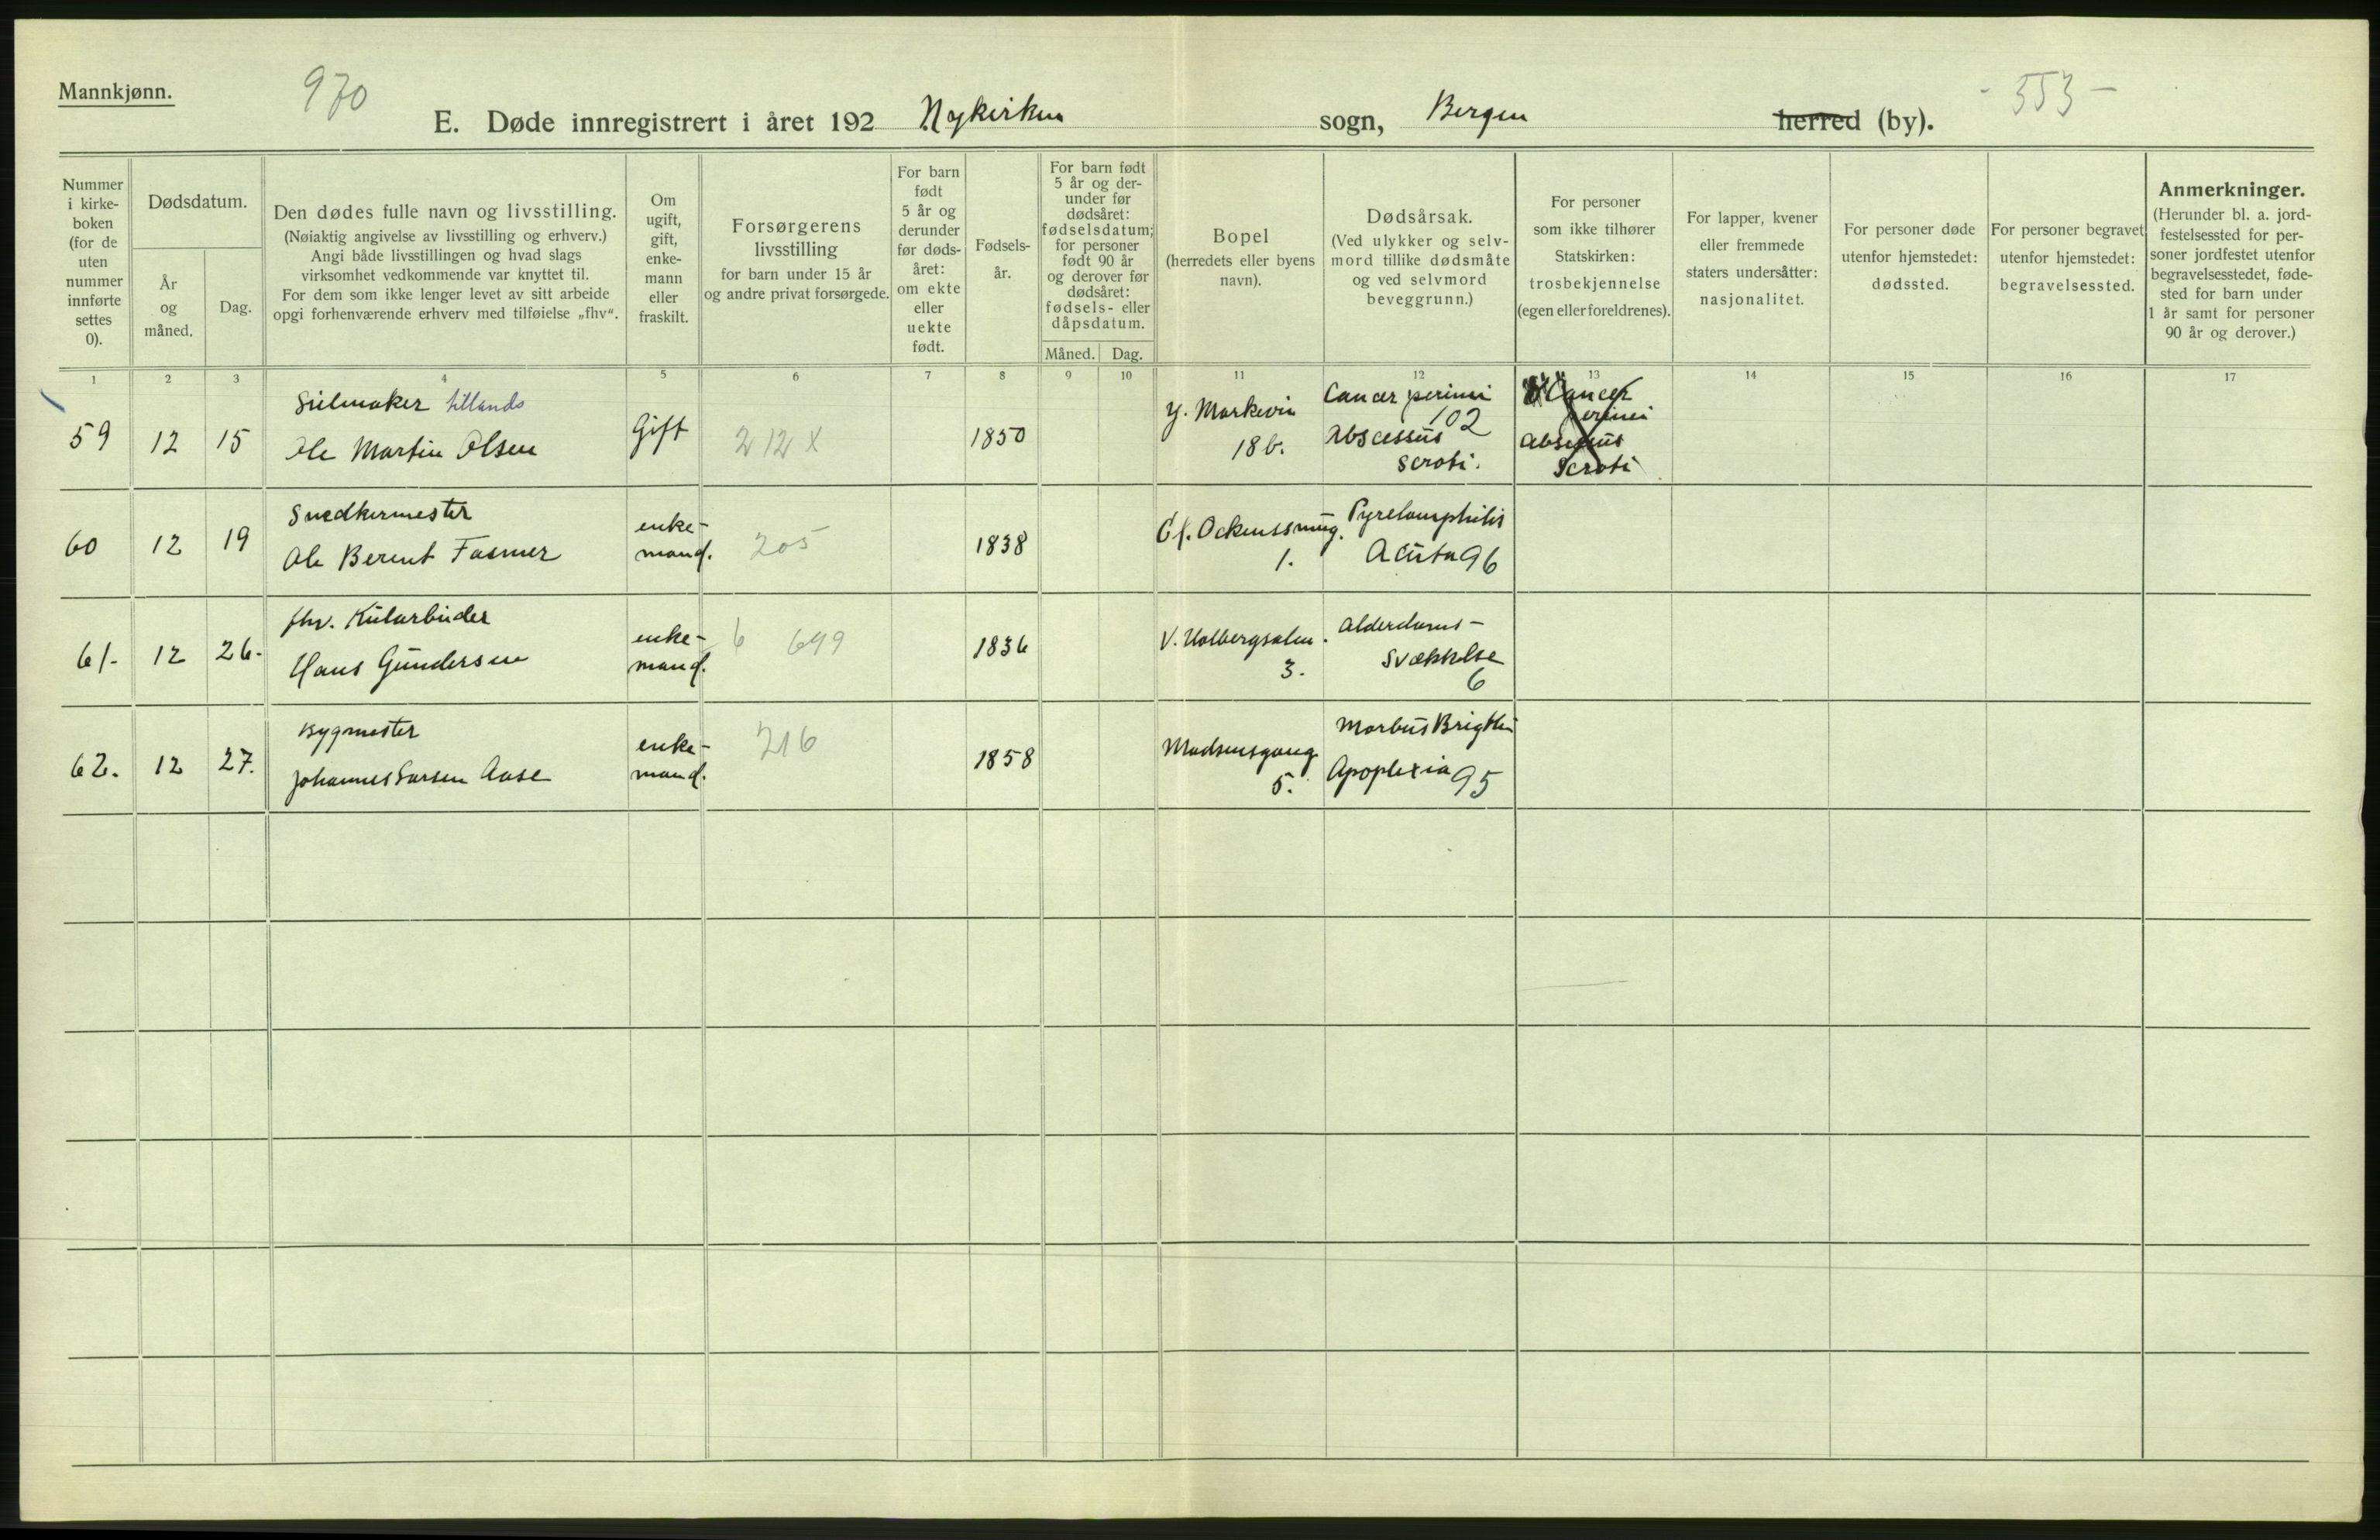 Mannkjønn.
970
E. Døde innregistrert i året 192 Nykirken sogn, Bergen herred (by).
- 353 -
Nummer
i kirke-
boken
(for de
uten
nummer
innførte
settes
0).
Dødsdatum.
År
og
måned.
Dag.
Den dødes fulle navn og livsstilling.
(Nøiaktig angivelse av livsstilling og erhverv.)
Angi både livsstillingen og hvad slags
virksomhet vedkommende var knyttet til.
For dem som ikke lenger levet av sitt arbeide
opgi forhenværende erhverv med tilføielse „fhv“.
Om
ugift,
gift,
enke-
mann
eller
fraskilt.
Forsørgerens
livsstilling
for barn under 15 år
og andre privat forsørgede.
For barn
født
5 år og
derunder
før døds-
året:
om ekte
eller
uekte
født.
Fødsels-
år.
For barn født
5 år og der-
under før
dødsåret:
fødselsdatum;
for personer
født 90 år
og derover før
dødsåret:
fødsels- eller
dåpsdatum.
Måned. Dag.
Bopel
(herredets eller byens
navn).
Dødsårsak.
(Ved ulykker og selv-
mord tillike dødsmåte
og ved selvmord
beveggrunn.)
For personer
som ikke tilhører
Statskirken:
trosbekjennelse
(egen eller foreldrenes).
For lapper, kvener
eller fremmede
staters undersåtter:
nasjonalitet.
For personer døde
utenfor hjemstedet:
dødssted.
For personer begravet
utenfor hjemstedet:
begravelsessted.
Anmerkninger.
(Herunder bl. a. jord-
festelsessted for per-
soner jordfestet utenfor
begravelsesstedet, føde-
sted for barn under
1 år samt for personer
90 år og derover.)
1 2 3 4 5 6 7 8 9 10 11 12 13 14 15 16 17
59 12 15
Seilmaker tillands
Ole Martin Olsen
Gift
212 X
1850
Y. Markevei
18 b.
Cancer perinei
102
Abscessus
scroti.
Cancer
perinei
Abscessus
Scroti
60 12 19
Snedkermester
Ole Berent Fasmer
enke-
mand.
205
1838
Cl. Ockenssmug.
1.
Acuta 96
61- 12 26-
fhv. Kularbeider
Hans Gundersen
enke-
mand.
6 699
1836
V. Holbergsalm.
3.
Alderdoms-
svækkelse
6
62. 12 27.
Bygmester
Johannes Larsen Aase
enke-
mand.
216
1858
Madsensgang
5.
Morbus Brigthii
Apoplexia 95